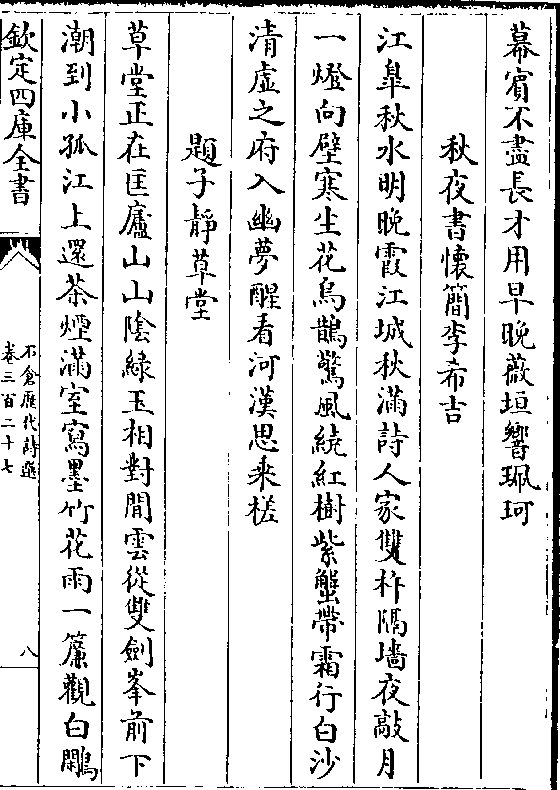 幕賓不盡長才用早晚薇垣響珮珂
秋夜書懐簡李希吉
江臯秋水明晚霞江城秋滿詩人家雙杵隔墻夜敲月
一燈向壁寒生花烏鵲驚風繞紅樹紫蟹帶霜行白沙
清虛之府入幽夢醒看河漢思乗槎
題子靜草堂
草堂正在匡廬山山陰緑玉相對閒雲從雙劍峯前下
潮到小孤江上還茶煙滿室寫墨竹花雨一簾觀白鷴
欽定四庫全書
石倉歴代詩選
卷三百二十七
八